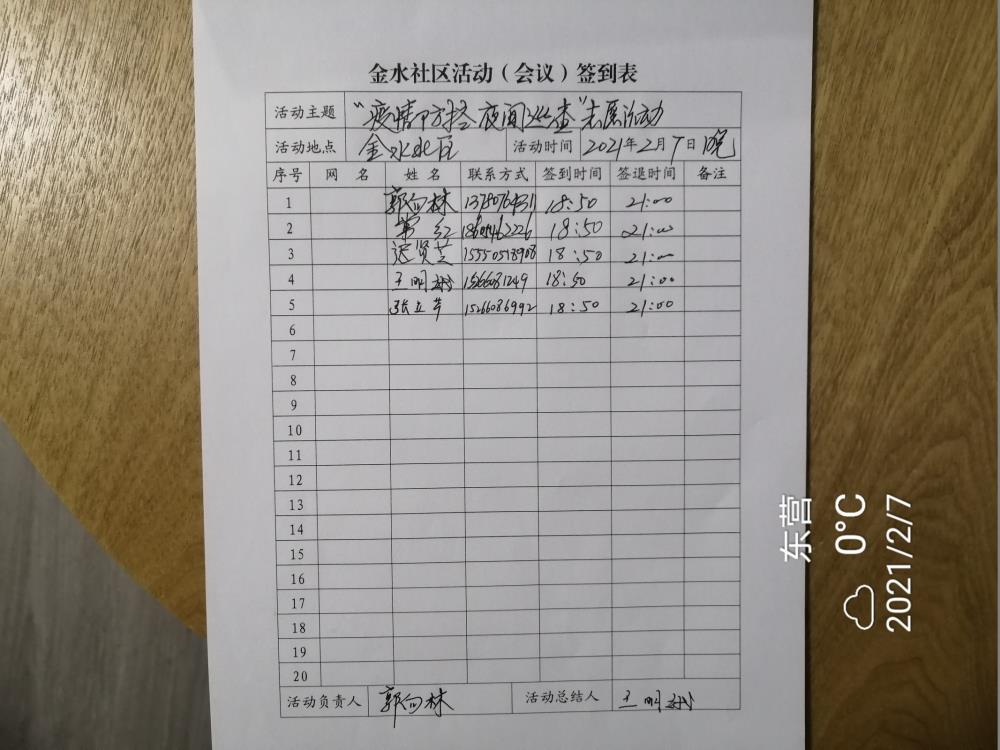 金水社区活动（会议）签到表
活动主题 “疫情防控夜间巡查”志愿活动
活动地点 金水社区 活动时间 2021年2月7日晚
序号 网 名 姓 名 联系方式 签到时间 签退时间 备注
1 郭向林 18:50 21:00
2 常红 18:50 21:00
3 张贤芝 15550518908 18:50 21:00
4 王明 18:50 21:00
5 张立芹 15266086992 18:50 21:00
6
7
8
9
10
11
12
13
14
15
16
17
18
19
20
活动负责人 郭向林 活动总结人 王明
东营
0°C
2021/2/7